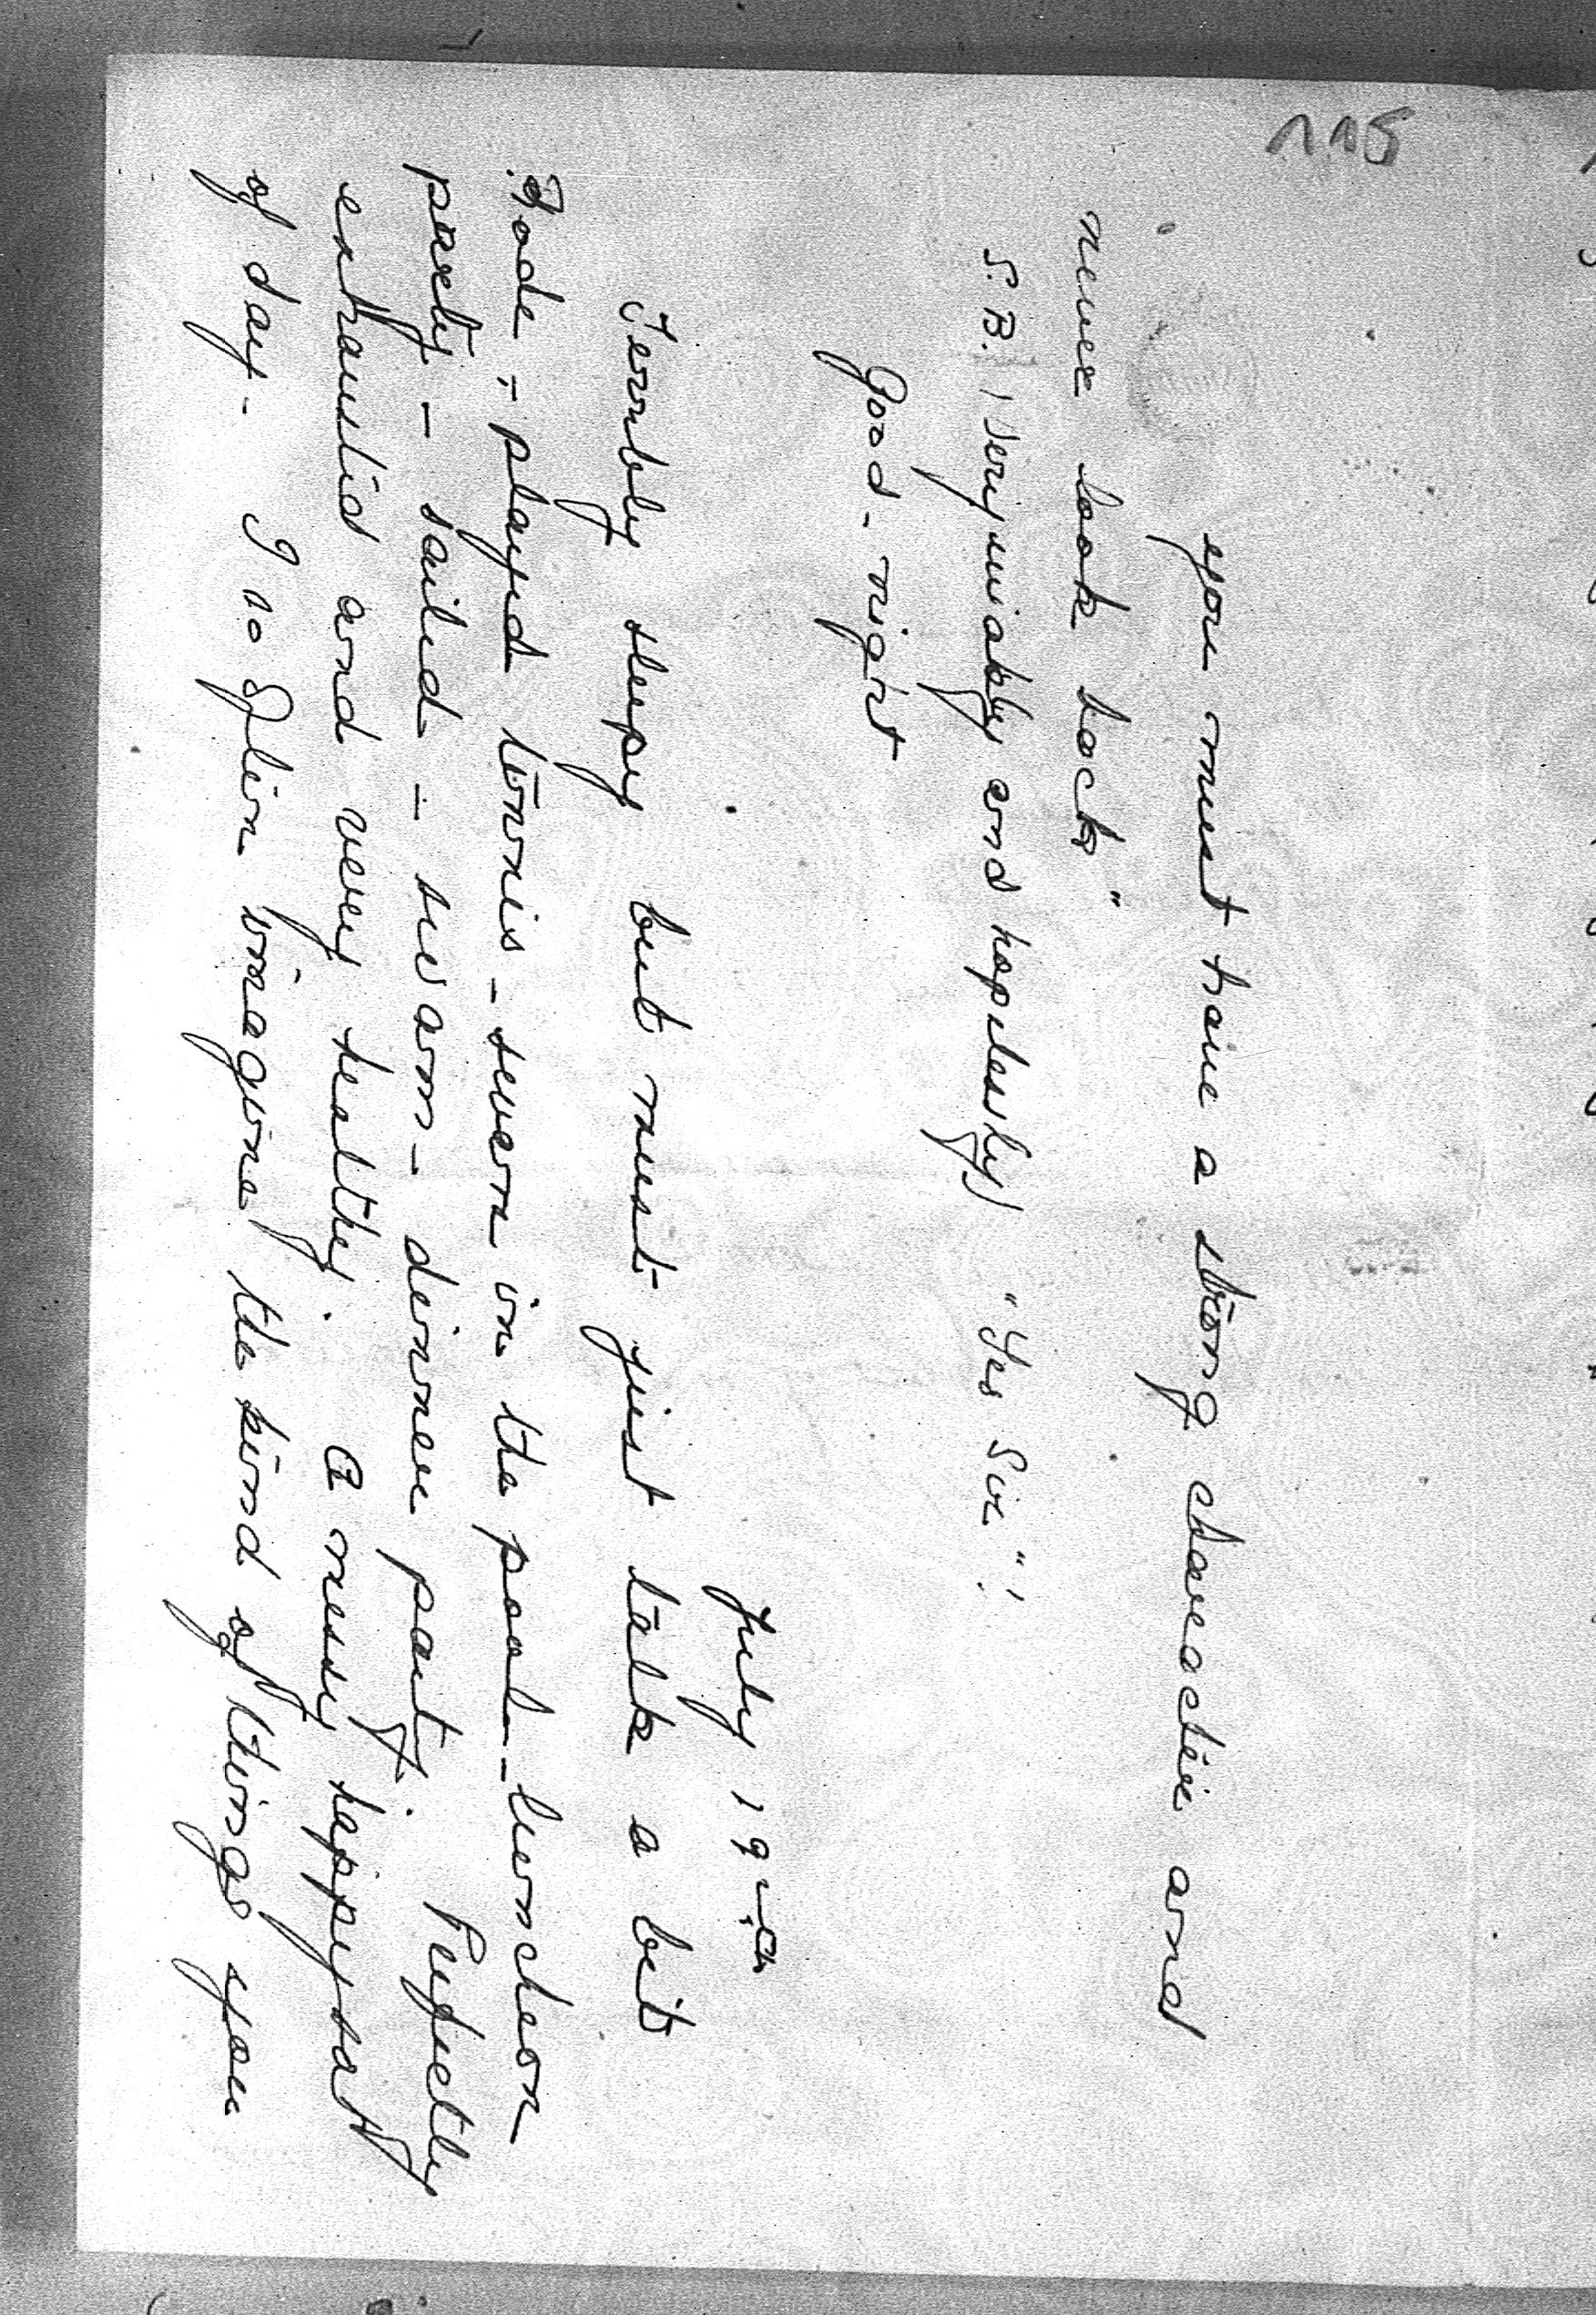 115
you must have a strong character and
never look back"
S.B. (very meekly and hopelessly) "Yes Sir"!
Good-night
July 19th
Terribly sleepy but must just talk a bit
Rode - played tennis - swam in the pool - luncheon
party - sailed - swam - dinner party. Perfectly
exhausted and very healthy. A messy happy sort
of day - I so often imagine the kind of things you